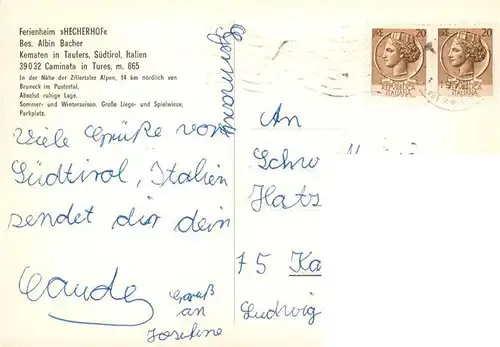 Ferienheim »HECHERHOF«
Bes. Albin Bacher
Kematen in Taufers, Südtirol, Italien
39032 Caminata in Tures, m. 865
In der Nähe der Zillertaler Alpen, 14 km nördlich von
Bruneck im Pustertal.
Absolut ruhige Lage.
Sommer- und Wintersaison. Große Liege- und Spielwiese,
Parkplatz.
Viele Grüße von
Südtirol, Italien
sendet dir dein
Gruß
an
Josefine
Germany
20
REPVBBLICA
ITALIANA
20
REPVBBLICA
ITALIANA
An
Schw
Hatz
75 Ka
Ludwig